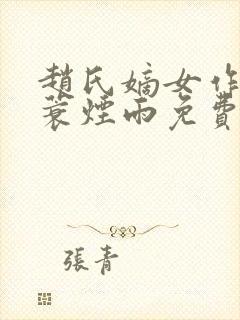 趙氏嫡女作
蓑煙雨免費
張青